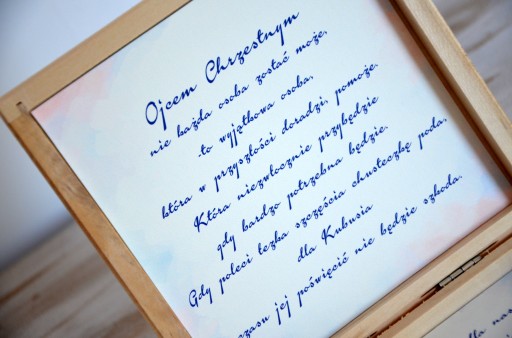 Ojcem Chrzestnym
nie każda osoba zostać może,
to wyjątkowa osoba,
która w przyszłości doradzi, pomoże.
Która niezwłocznie przybędzie
gdy bardzo potrzebna będzie.
Gdy poleci łezka szczęścia chusteczkę poda,
dla Kubusia
czasu jej poświęcić nie będzie szkoda.
dla nas